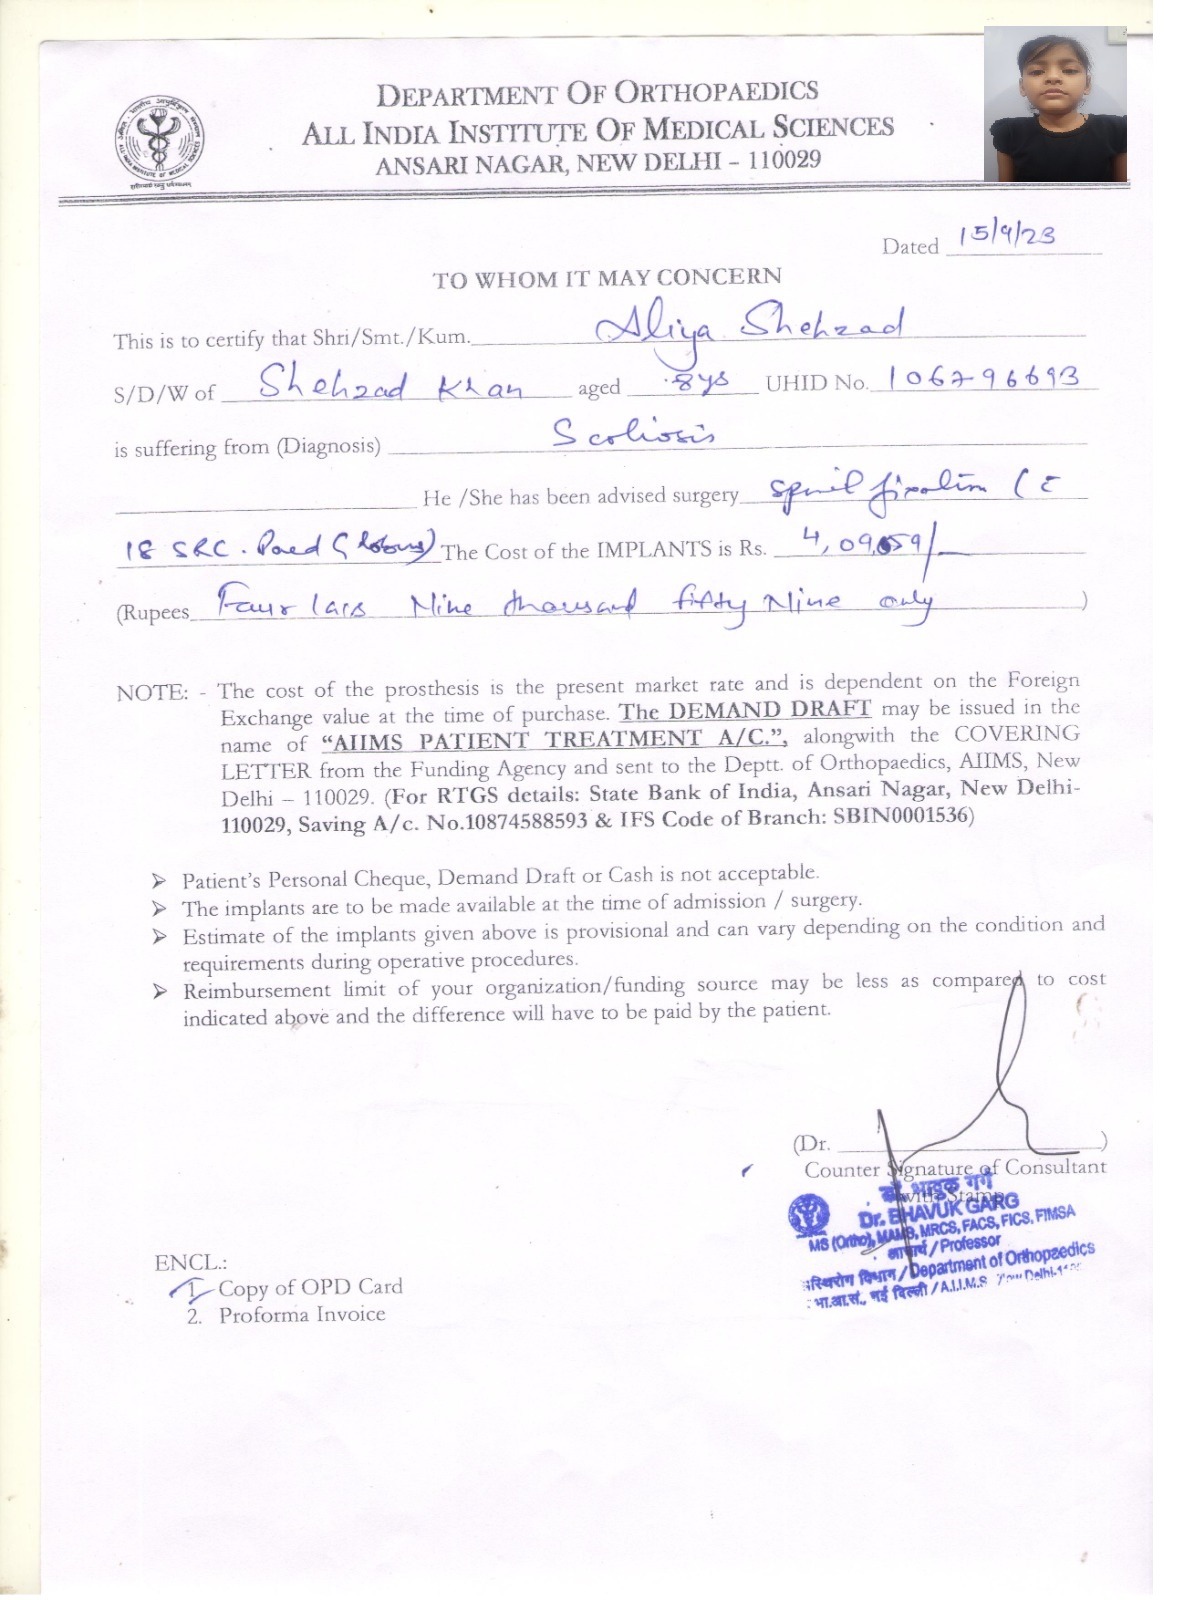 DEPARTMENT OF ORTHOPAEDICS
ALL INDIA INSTITUTE OF MEDICAL SCIENCES
ANSARI NAGAR, NEW DELHI – 110029
Dated 15/9/23
TO WHOM IT MAY CONCERN
This is to certify that Shri/Smt./Kum. Aliya Shehzad
S/D/W of Shehzad Khan aged 8ys UHID No. 106796693
is suffering from (Diagnosis) Scoliosis
He /She has been advised surgery fixation (c
18 SRC. The Cost of the IMPLANTS is Rs. 4,09,059/-
(Rupees Four lacs Nine thousand fifty Nine only )
NOTE: - The cost of the prosthesis is the present market rate and is dependent on the Foreign
Exchange value at the time of purchase. The DEMAND DRAFT may be issued in the
name of “AIIMS PATIENT TREATMENT A/C.”, alongwith the COVERING
LETTER from the Funding Agency and sent to the Deptt. of Orthopaedics, AIIMS, New
Delhi – 110029. (For RTGS details: State Bank of India, Ansari Nagar, New Delhi-
110029, Saving A/c. No.10874588593 & IFS Code of Branch: SBIN0001536)
➢ Patient’s Personal Cheque, Demand Draft or Cash is not acceptable.
➢ The implants are to be made available at the time of admission / surgery.
➢ Estimate of the implants given above is provisional and can vary depending on the condition and
requirements during operative procedures.
➢ Reimbursement limit of your organization/funding source may be less as compared to cost
indicated above and the difference will have to be paid by the patient.
(Dr. )
Counter Signature of Consultant
with Stamp
डॉ. भावुक गर्ग
Dr. BHAVUK GARG
MS (Ortho), MAMS, MRCS, FACS, FICS, FIMSA
आचार्य / Professor
अस्थिरोग विभाग / Department of Orthopaedics
भा.आ.सं., नई दिल्ली / A.I.I.M.S New Delhi
ENCL.:
1. Copy of OPD Card
2. Proforma Invoice